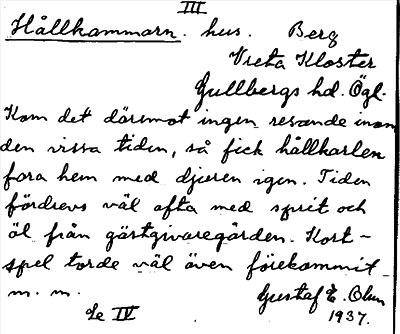 III
Hållkammarn. hus. Berg
Vreta Kloster
Gullbergs hd. Ögl.
Kom det däremot ingen resande inom
den vissa tiden, så fick hållkarlen
fara hem med djuren igen. Tiden
fördrevs väl ofta med sprit och
öl från gästgivaregården. Kort-
spel torde väl även förekommit
m. m. Gustaf E. Olun
Se IV 1937.